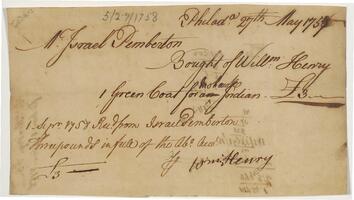 5/27/1758
Philada. 27th May 1758
Mr. Israel Pemberton
Bought of Willm Henry
Mohawk
1 Green Coat for an Indian £3
1 Sepr. 1758 Recd from Israel Pemberton
three pounds in full of the Abe. Acct.
£3 Wm: Henry